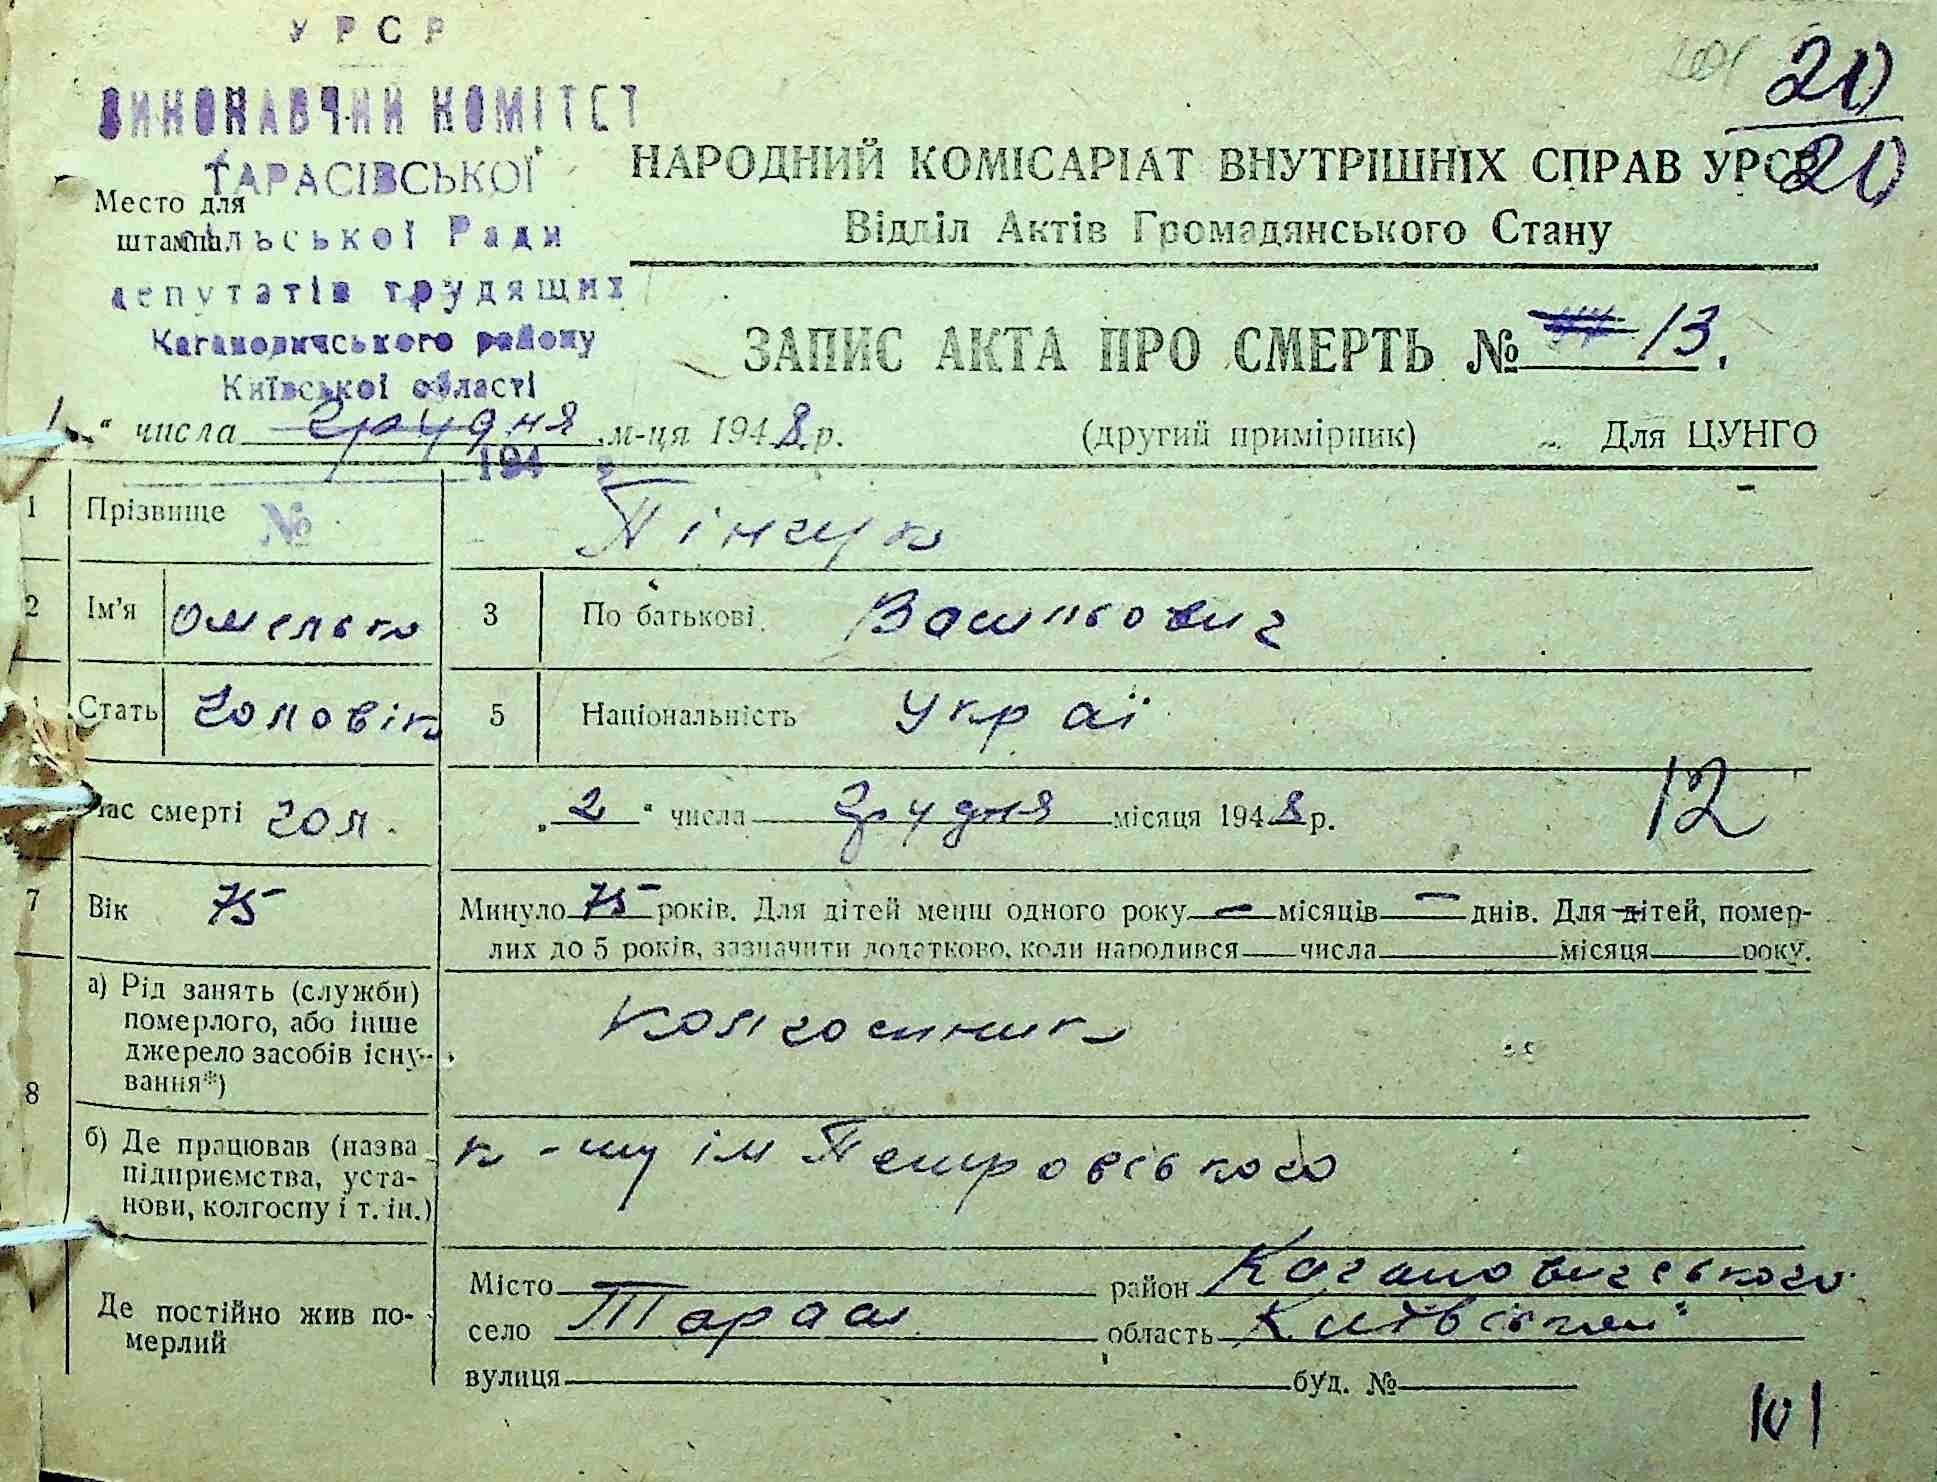 УРСР
ВИКОНАВЧИЙ КОМІТЕТ
ТАРАСІВСЬКОЇ
сільської Ради
депутатів трудящих
Кагановичського району
Київської області
194
№
Место для
штампа
20
20
НАРОДНИЙ КОМІСАРІАТ ВНУТРІШНІХ СПРАВ УРСР
Відділ Актів Громадянського Стану
ЗАПИС АКТА ПРО СМЕРТЬ № 13.
" числа грудня м-ця 1948 р. (другий примірник) Для ЦУНГО
1 Прізвище Пінчук
2 Ім'я Омелько 3 По батькові Васильович
Стать Чоловік 5 Національність Украї
Час смерті чол. „2" числа грудня місяця 1948 р. 12
7 Вік 75 Минуло 75 років. Для дітей менш одного року — місяців — днів. Для дітей, помер-
лих до 5 років, зазначити додатково, коли народився числа місяця року.
8 а) Рід занять (служби)
померлого, або інше
джерело засобів існу-
вання*)
Колгоспник
б) Де працював (назва
підприємства, уста-
нови, колгоспу і т. ін.)
к-пу ім Петровського
Де постійно жив по-
мерлий
Місто район Кагановичського
село Тараси область Київської
вулиця буд. №
101